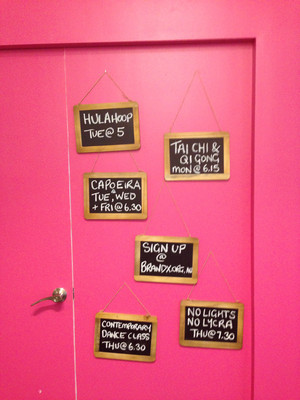 HULAHOOP
TUE@5
TAI CHI &
QI GONG
MON@6.15
CAPOEIRA
TUE, WED
+ FRI@6.30
SIGN UP
@
BRANDX.ORG.AU
CONTEMPORARY
DANCE CLASS
THU@6.30
NO LIGHTS
NO LYCRA
THU@7.30